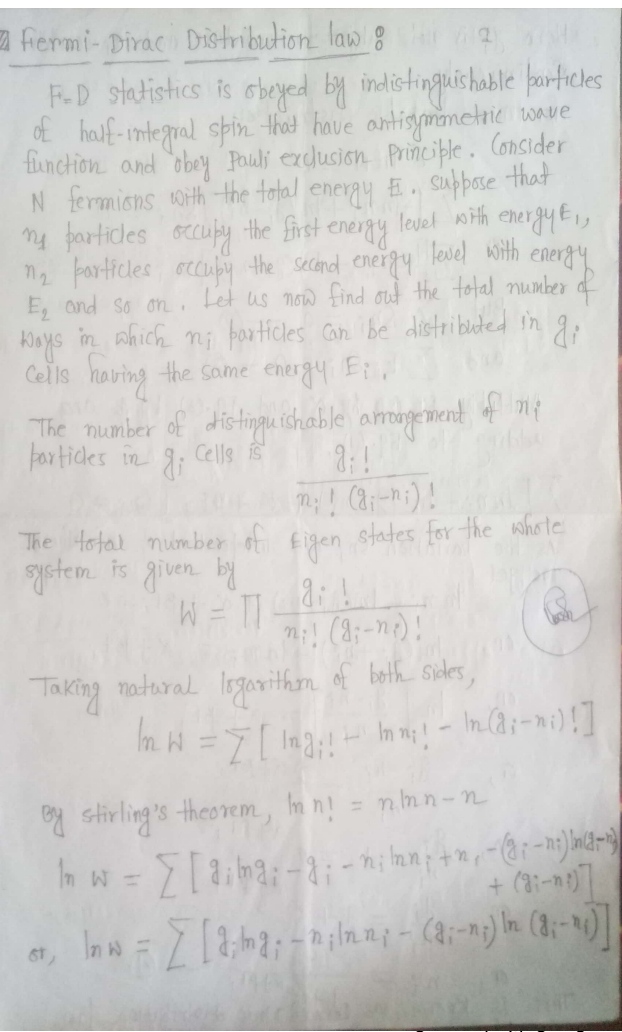 Fermi-Dirac Distribution law :
F-D statistics is obeyed by indistinguishable particles
of half-integral spin that have antisymmetric wave
function and obey Pauli exclusion Principle. Consider
N fermions with the total energy E. Suppose that
n₁ particles occupy the first energy level with energy E₁,
n₂ particles occupy the second energy level with energy
E₂ and so on. Let us now find out the total number of
ways in which nᵢ particles can be distributed in gᵢ
Cells having the same energy Eᵢ.
The number of distinguishable arrangement of nᵢ
particles in gᵢ Cells is gᵢ! / nᵢ! (gᵢ-nᵢ)!
The total number of Eigen states for the whole
system is given by
W = Π gᵢ! / nᵢ! (gᵢ-nᵢ)!
Taking natural logarithm of both sides,
ln W = Σ [ ln gᵢ! - ln nᵢ! - ln(gᵢ-nᵢ)!]
By stirling's theorem, ln n! = n ln n - n
ln W = Σ [gᵢ ln gᵢ - gᵢ - nᵢ ln nᵢ + nᵢ - (gᵢ-nᵢ) ln(gᵢ-nᵢ)
+ (gᵢ-nᵢ)]
or, ln W = Σ [gᵢ ln gᵢ - nᵢ ln nᵢ - (gᵢ-nᵢ) ln (gᵢ-nᵢ)]